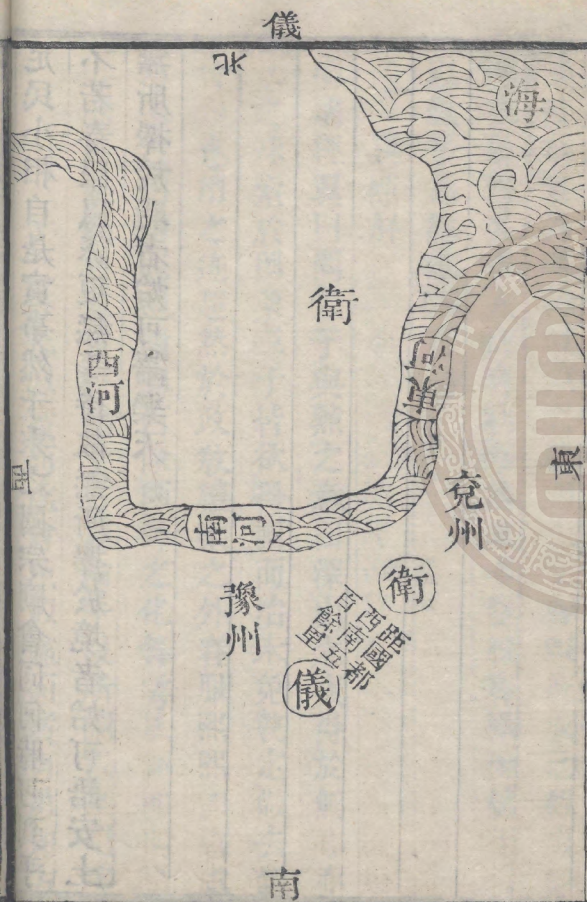 儀
北
海
衛
西河
東河
西
東
南河
兗州
豫州
衛
距國都
西南五
百餘里
儀
南